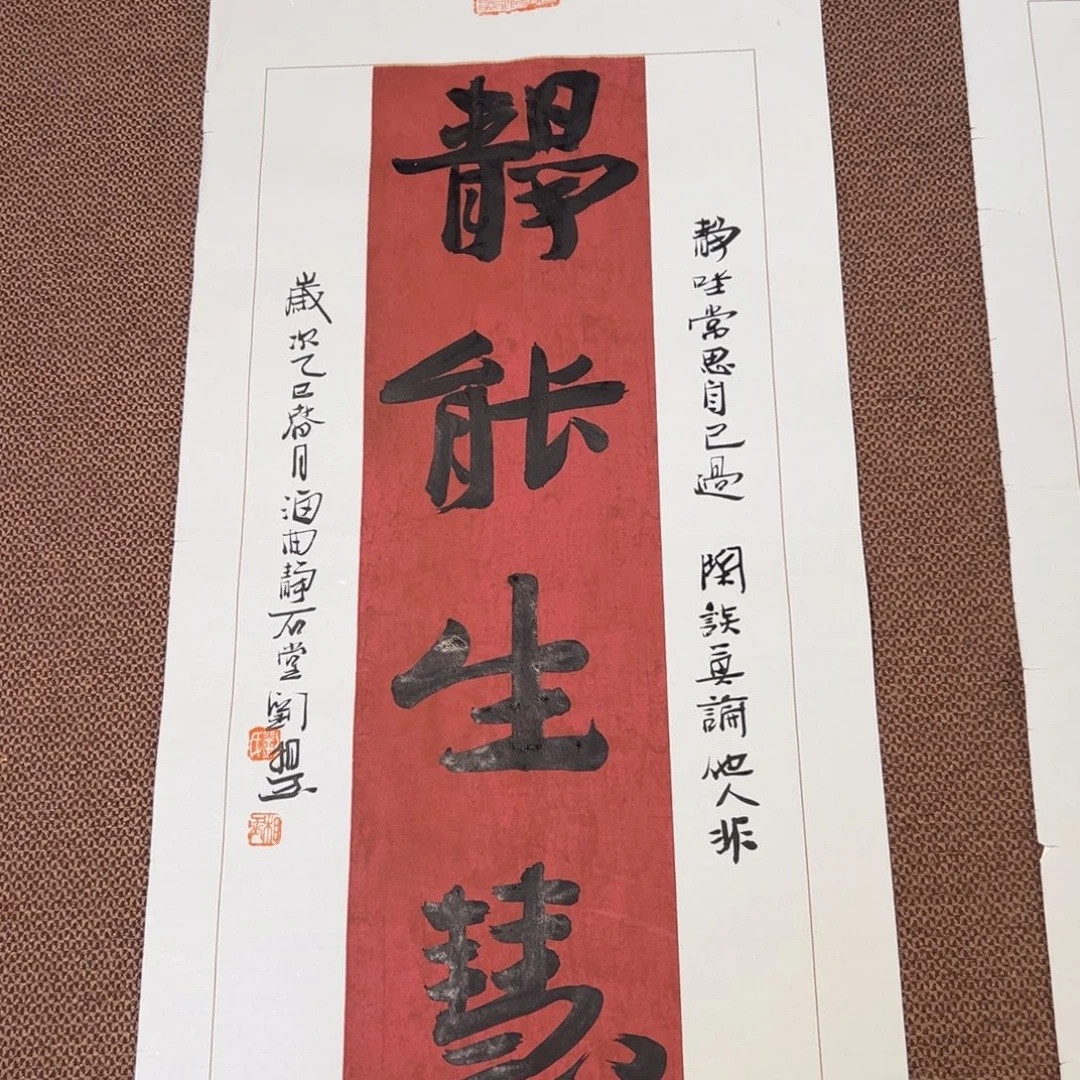 靜能生慧
静坐常思自己過 閑談莫論他人非
歲次乙巳春月海曲静石堂劉相